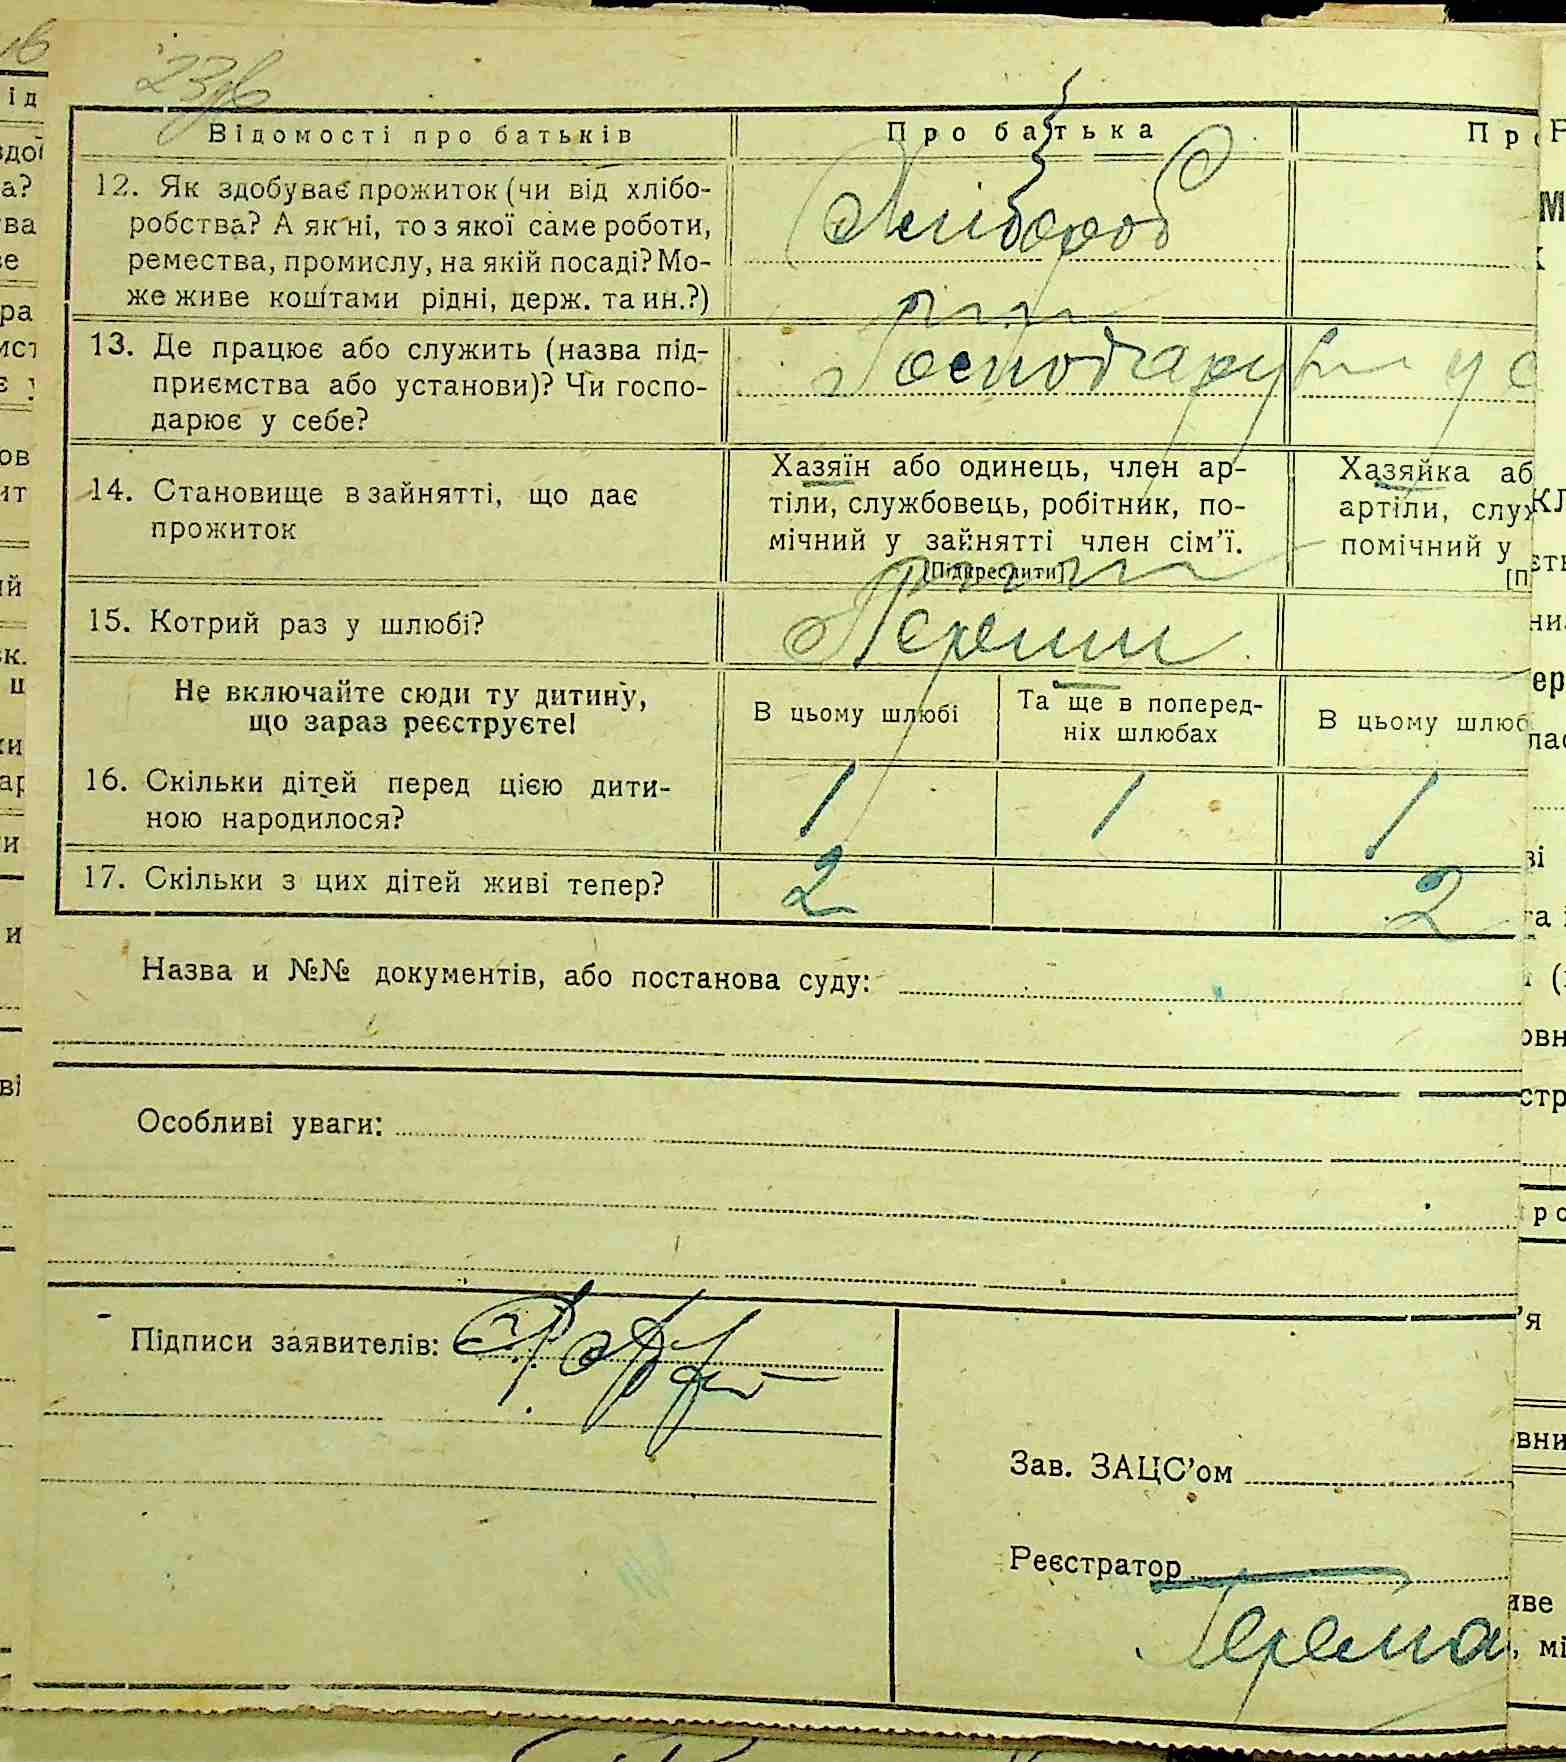 23зв
Відомості про батьків
Про батька
12. Як здобуває прожиток (чи від хлібо-
робства? А як ні, то з якої саме роботи,
ремества, промислу, на якій посаді? Мо-
же живе коштами рідні, держ. та ин.?)
Хлібороб
13. Де працює або служить (назва під-
приємства або установи)? Чи госпо-
дарює у себе?
Господарують у с
14. Становище в зайнятті, що дає
прожиток
Хазяїн або одинець, член ар-
тіли, службовець, робітник, по-
мічний у зайнятті член сім'ї.
[Підкреслити]
Хазяйка аб
артіли, служ
помічний у
[П
15. Котрий раз у шлюбі?
Перший
Не включайте сюди ту дитину,
що зараз реєструєте!
В цьому шлюбі
Та ще в поперед-
ніх шлюбах
В цьому шлюб
16. Скільки дітей перед цією дити-
ною народилося?
1 1 1
17. Скільки з цих дітей живі тепер?
2 2
Назва и №№ документів, або постанова суду:
Особливі уваги:
Підписи заявителів:
Зав. ЗАЦС'ом
Реєстратор